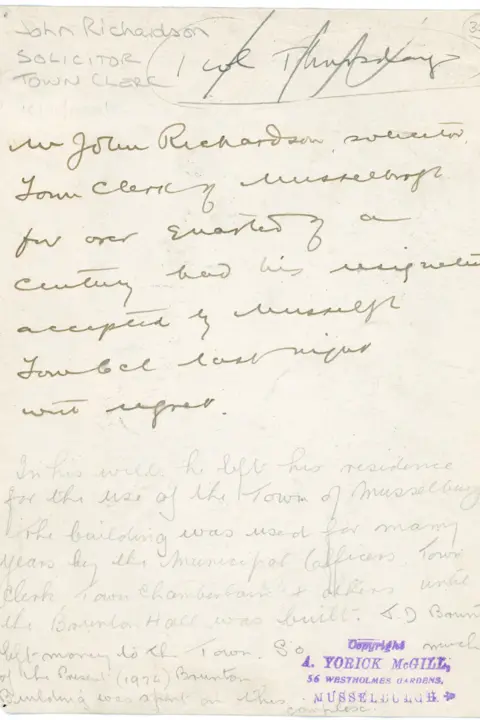 John Richardson
SOLICITOR
TOWN CLERK
1 col Thursday
Mr John Richardson, solicitor,
Town Clerk of Musselburgh
for over quarter of a
century had his resignation
accepted by Musselbgh
Town Ccl last night
with regret.
In his will he left his residence
for the use of the Town of Musselburgh
The building was used for many
years by the Municipal Officers, Town
Clerk Town Chamberlain & others until
the Brunton Hall was built. J.D Brunton
left money to the Town. So much
of the Present (1972) Brunton
Building was spent on this complex.
Copyright
A. YORICK McGILL,
56 WESTHOLMES GARDENS,
MUSSELBURGH